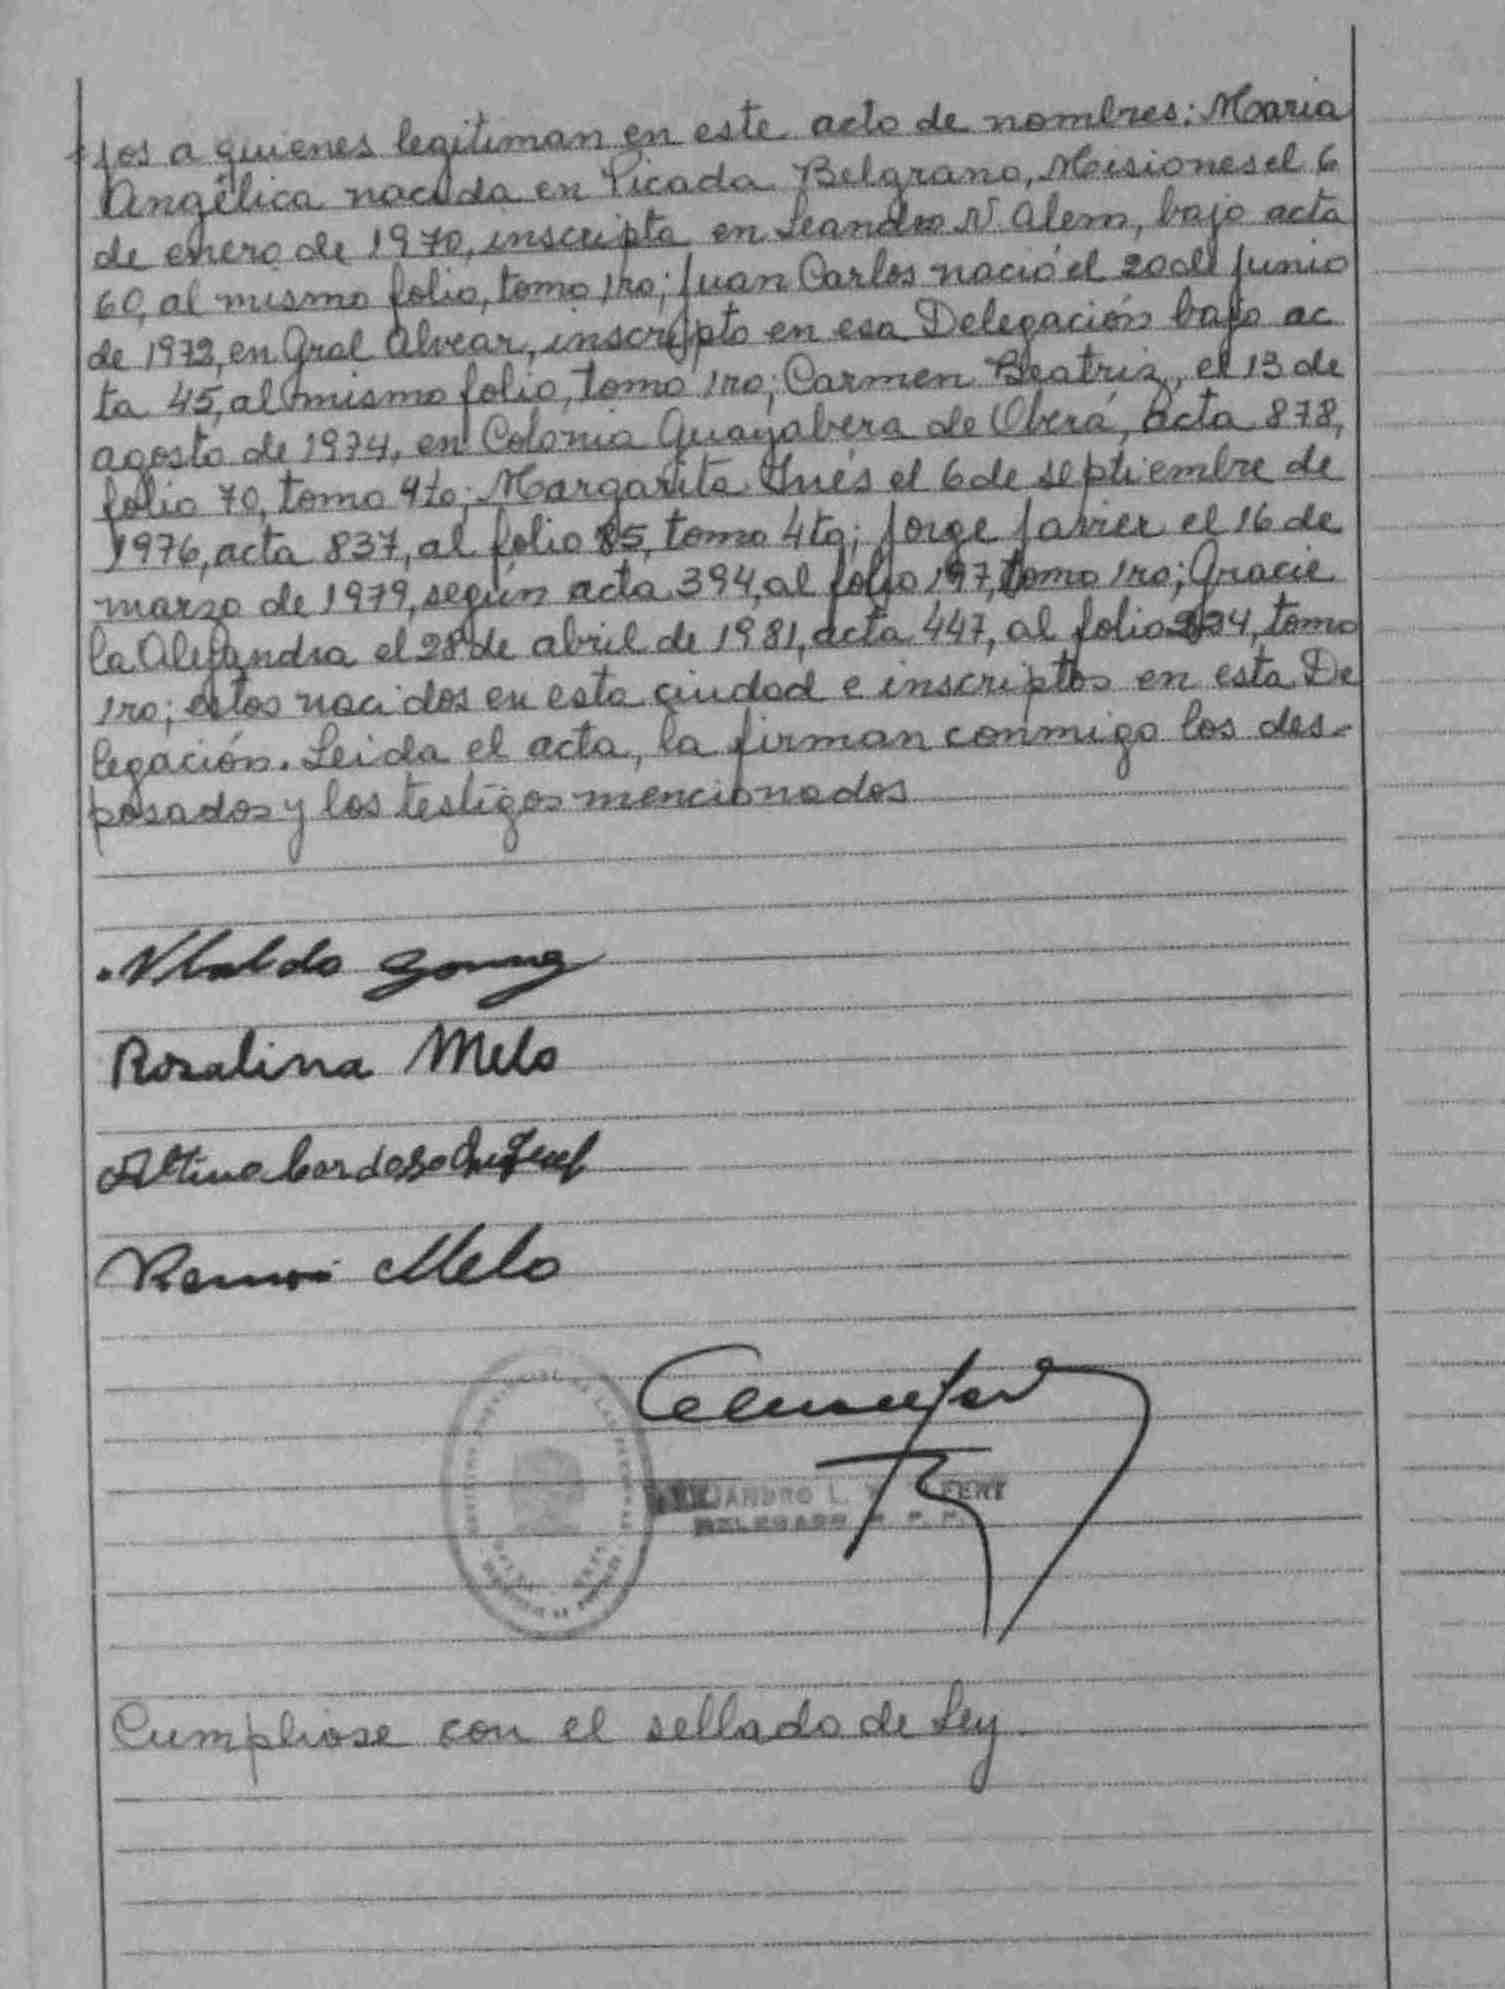 jos a quienes legitiman en este acto de nombres: Maria
Angélica nacida en Picada Belgrano, Misiones el 6
de enero de 1970, inscripta en Leandro N. Alem, bajo acta
60, al mismo folio, tomo 1ro; Juan Carlos nació el 20 de junio
de 1972, en Gral Alvear, inscripto en esa Delegación bajo ac
ta 45, al mismo folio, tomo 1ro; Carmen Beatriz, el 13 de
agosto de 1974, en Colonia Guayabera de Oberá, acta 878,
folio 70, tomo 4to; Margarita Inés el 6 de septiembre de
1976, acta 837, al folio 85, tomo 4to; Jorge Javier el 16 de
marzo de 1979, según acta 394, al folio 197, tomo 1ro; Gracie
la Alejandra el 28 de abril de 1981, acta 447, al folio 224, tomo
1ro; estos nacidos en esta ciudad e inscriptos en esta De
legación. Leida el acta, la firman conmigo los des-
posados y los testigos mencionados
Rosalina Melo
Ramón Melo
DELEGADO
Cumpliose con el sellado de Ley